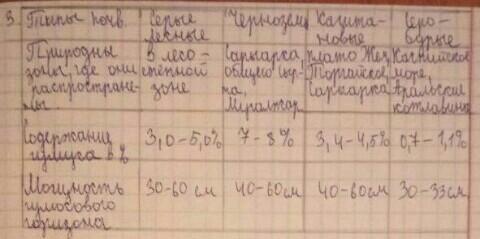 3 Типы почв. Серые лесные Чернозем Кашта- новые Серо- бурые
Природны зоны, где они распростране- ны. В лесо- степной зоне Сарыарка, общего Мугалжар плато Жез, Торгайское, Сарыарка Каспийское море, Аральские котловины
Содержание гумуса в % 3,0-5,0% 7-8% 3,4-4,5% 0,7-1,1%
Мощность гумосового горизона 30-60 см 40-60см 40-60см 30-33см